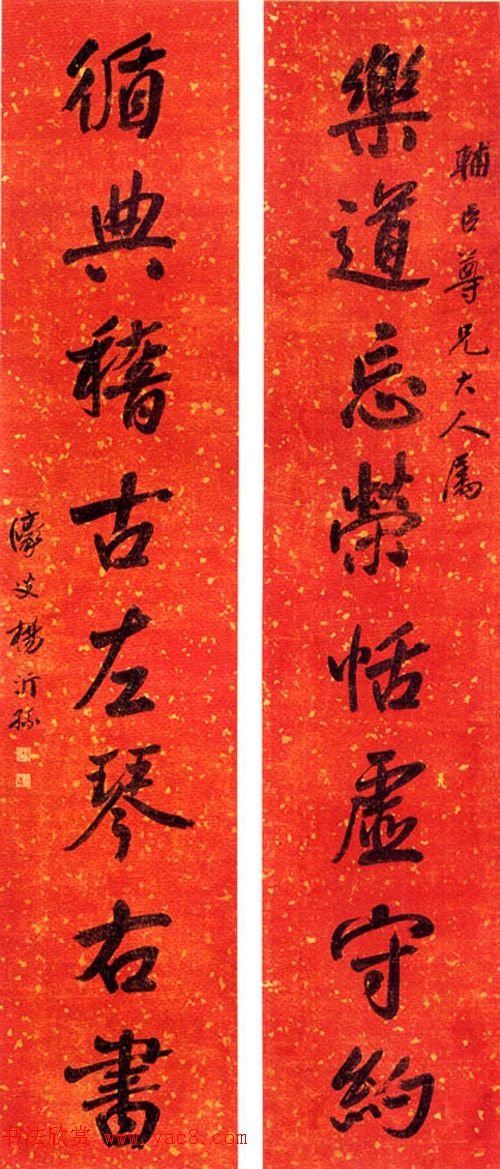 輔臣尊兄大人屬
樂道忘榮恬虛守約
循典稽古左琴右書
濠叟楊沂孫
书法欣赏 www.yac8.com